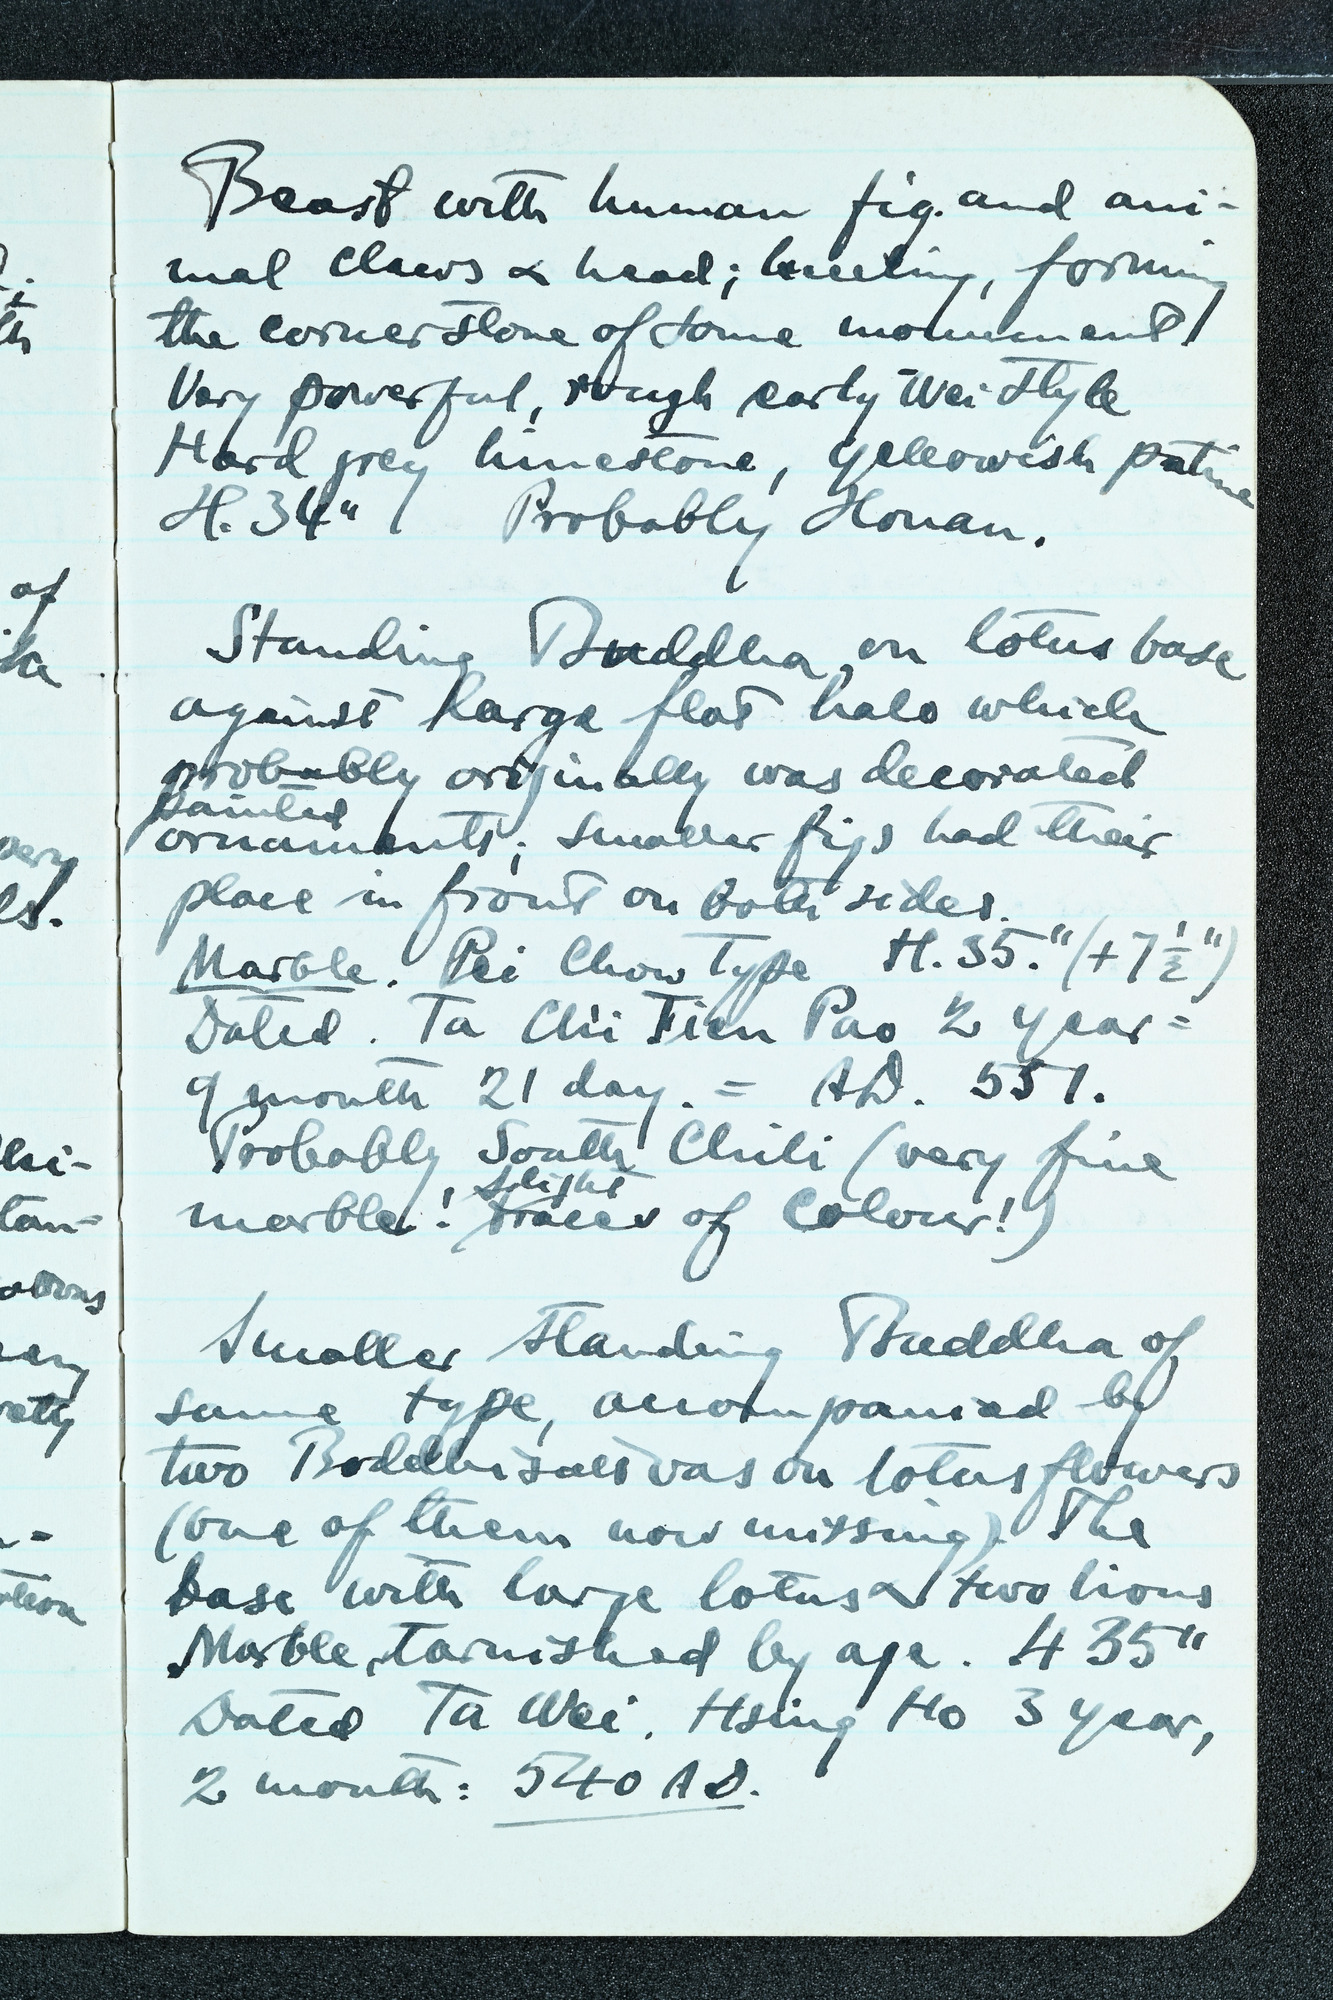 Beast with human fig. and ani-
mal claws & head; kneeling, forming
the corner stone of some monument
Very powerful, rough early Wei style
Hard grey limestone, yellowish patine
H. 34" Probably Honan.
Standing Buddha on lotus base
against large flat halo which
probably originally was decorated
painted
ornaments; smaller figs had their
place in front on both sides.
Marble. Pei Chow Type H. 35." (+7½")
Dated. Ta Chi Tien Pao 2 year =
9 month 21 day. = AD. 551.
Probably South Chili (very fine
slight
marble! traces of colour!)
Smaller standing Buddha of
same type, accompanied by
two Boddhisatsvas on lotus flowers
(one of them now missing). The
base with large lotus & two lions
Marble, tarnished by age. H 35"
Dated Ta Wei. Hsing Ho 3 year,
2 month: 540 AD.